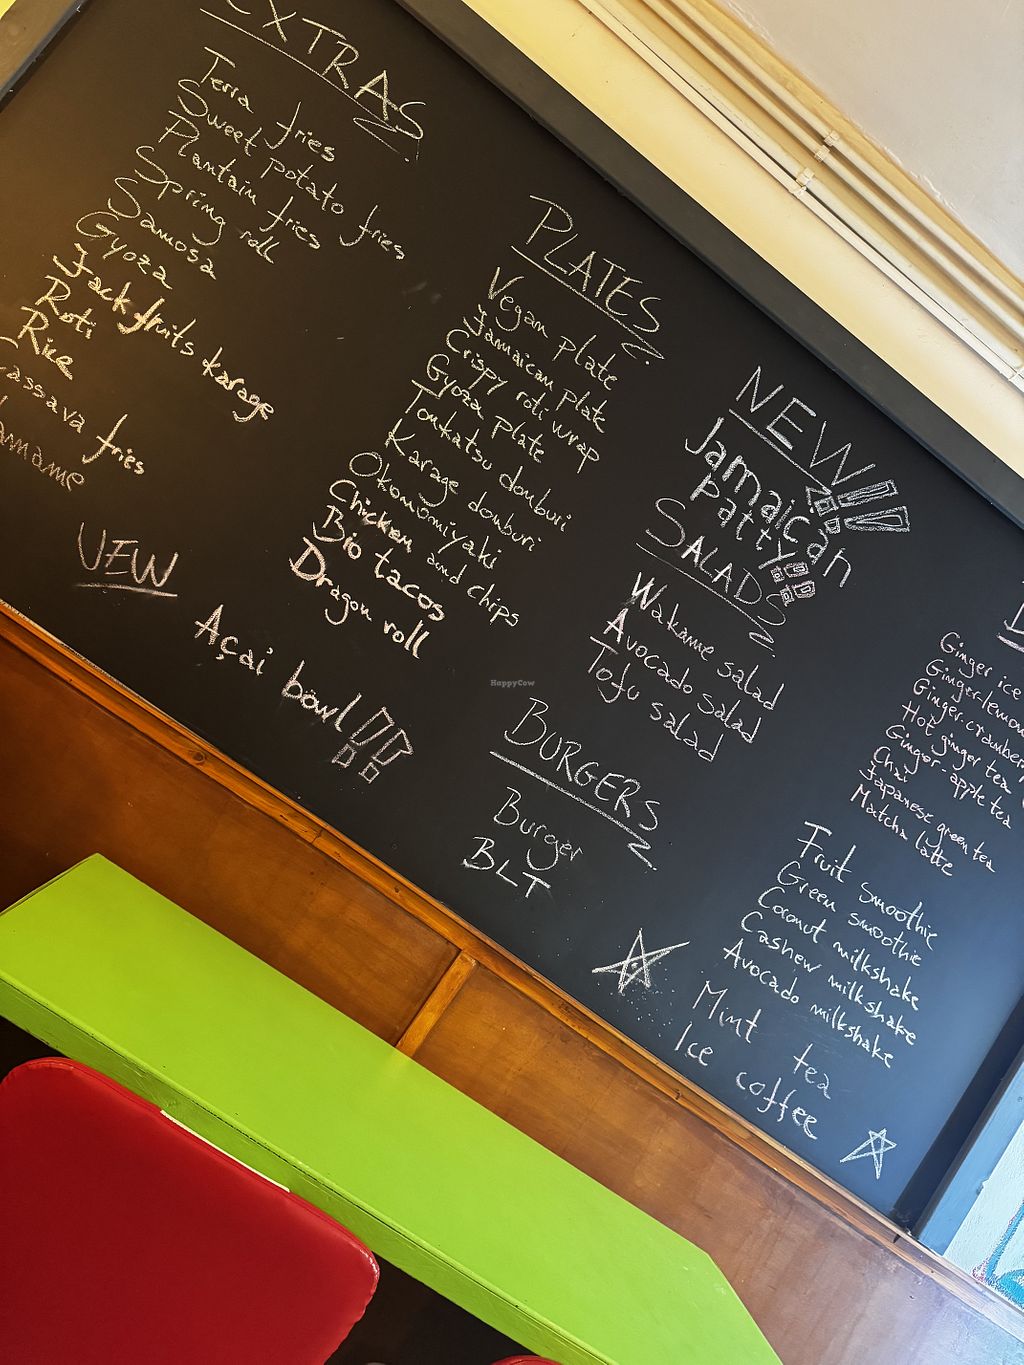 EXTRAS
Terra fries
Sweet potato fries
Plantain fries
Spring roll
Samosa
Gyoza
Jackfruits karage
Roti
Rice
fries
NEW
Açai böwl!!
PLATES
Vegan plate
Jamaican plate
Crispy roti wrap
Gyoza plate
Tonkatsu donburi
Karage donburi
Okonomiyaki
Chicken and chips
Bio tacos
Dragon roll
NEW!!
Jamaican
Patty
SALADS
Wakame salad
Avocado salad
Tofu salad
BURGERS
Burger
BLT
Ginger ice
Ginger-lemon
Ginger-cranberry
Hot ginger tea
Ginger-apple tea
Chai
Japanese green tea
Matcha latte
Fruit smoothie
Green smoothie
Coconut milkshake
Cashew milkshake
Avocado milkshake
Mint tea
Ice coffee
HappyCow